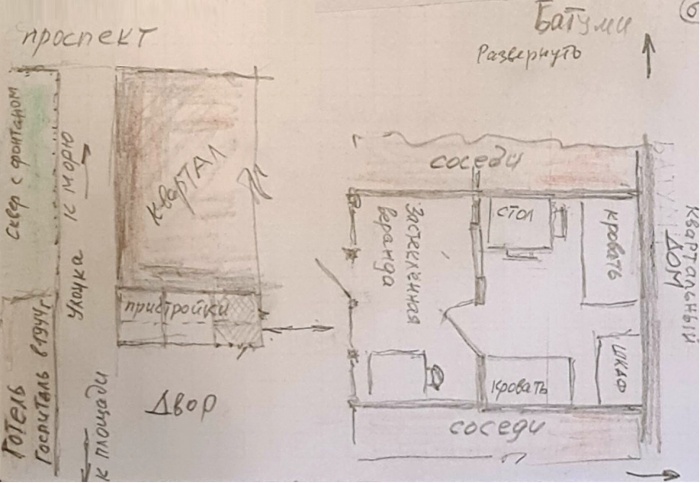 6
Батуми
Развернуть
проспект
сквер с фонтаном
к морю
Улочка
к площади
Готель
Госпиталь в 1944г.
КВАРТАЛ
пристройки
Двор
соседи
Застеклённая
веранда
стол
кровать
шкаф
кровать
соседи
Квартальный
дом